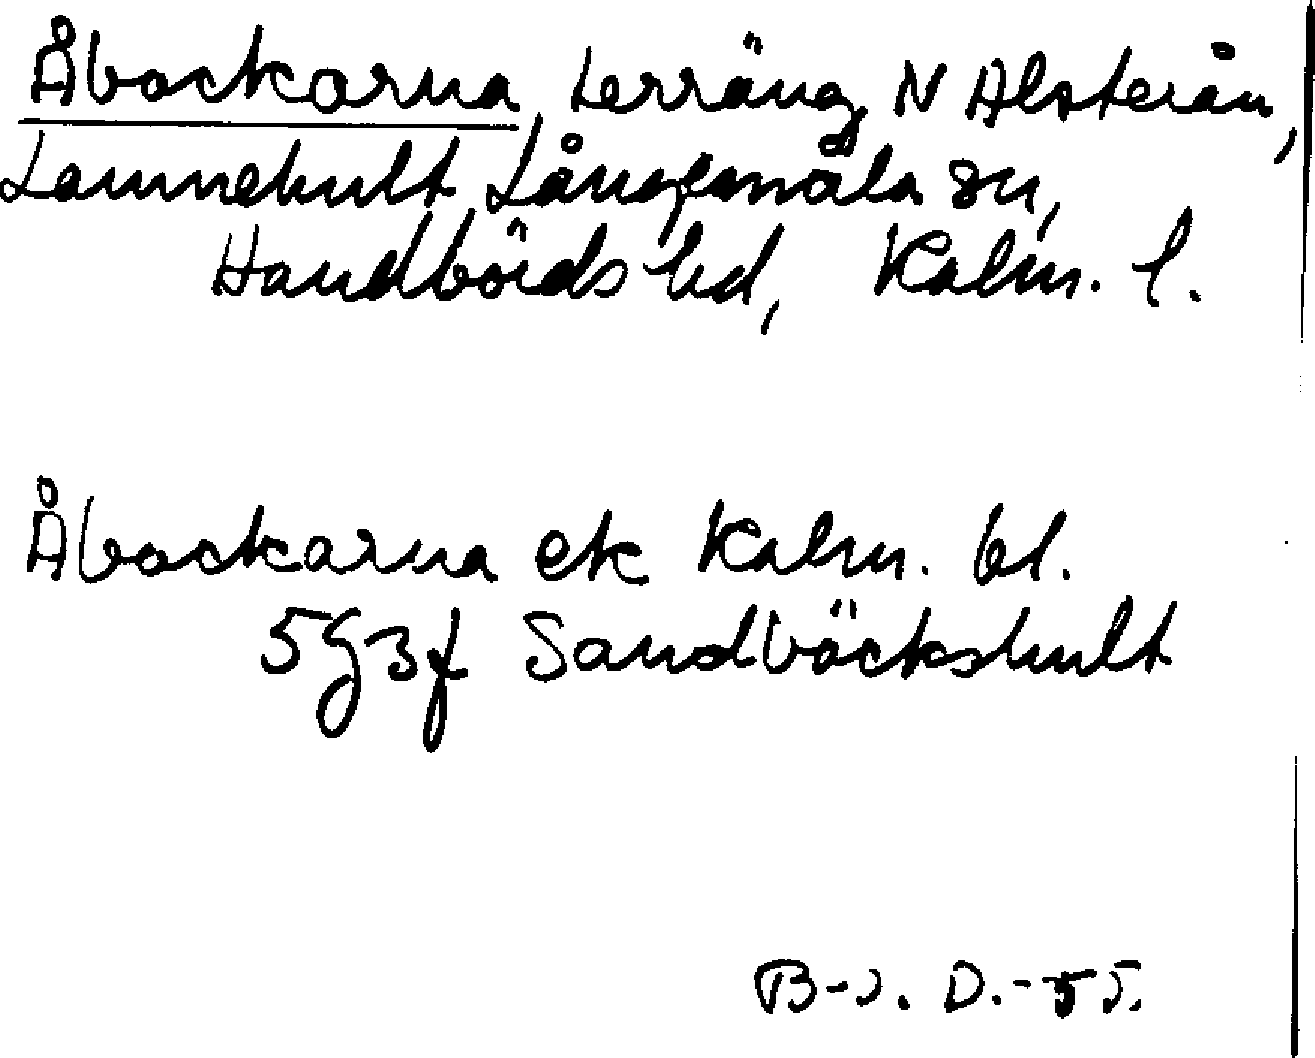 Åbackarna, terräng N Alsterån,
Lammehult Långemåla sn,
Handbörds hd, Kalm. l.
Åbackarna ek Kalm. bl.
5G3f Sandbäckshult
B-J. D.-55.